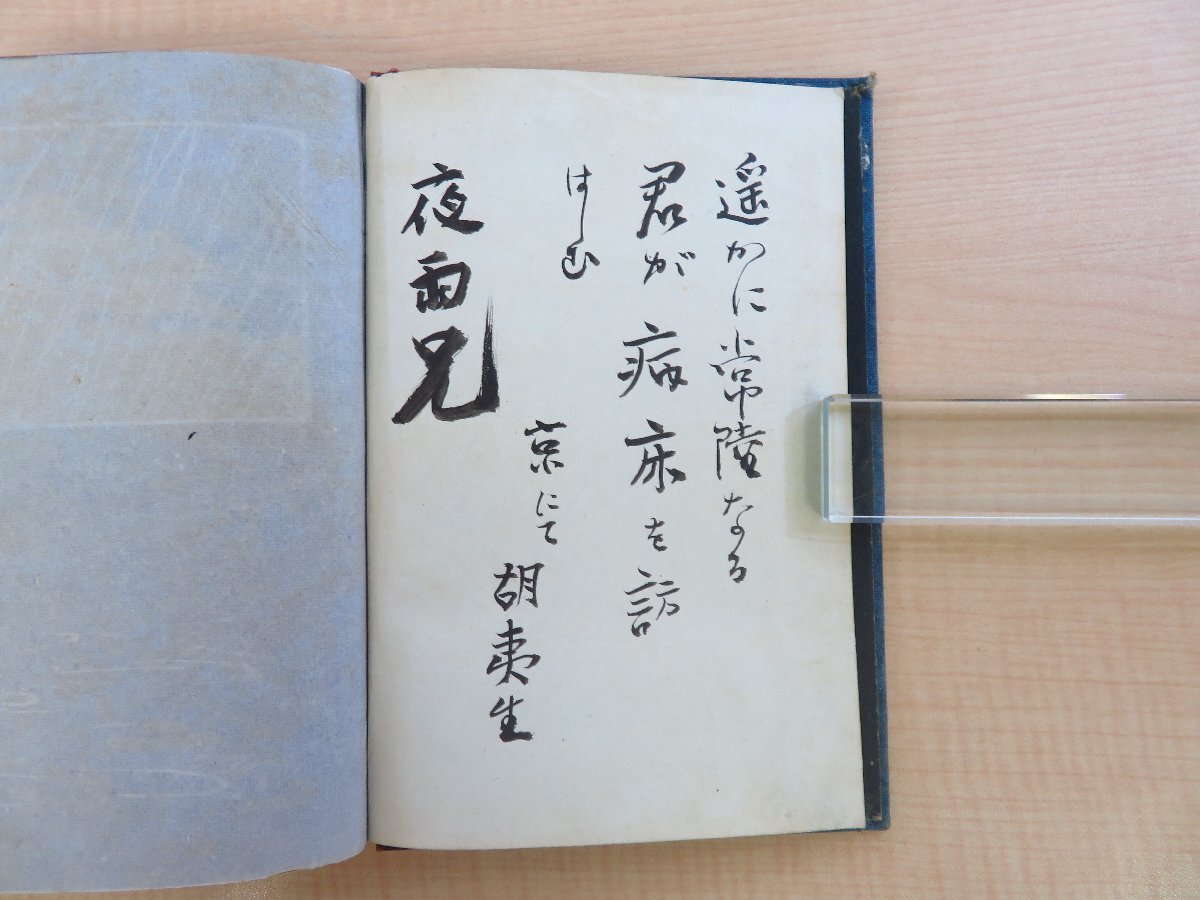 遥かに常陸なる
君が病床を訪
はしむ
京にて
胡夷生
夜雨兄